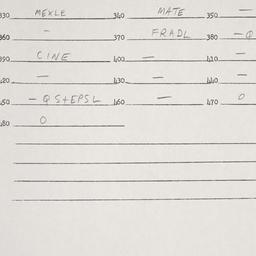 330 MEKLE 340 MATE 350 —
360 - 370 FRADL 380 - Q
390 CINE 400 — 410 —
420 — 430 — 440 —
450 - QS+EPSL 460 — 470 O
480 O